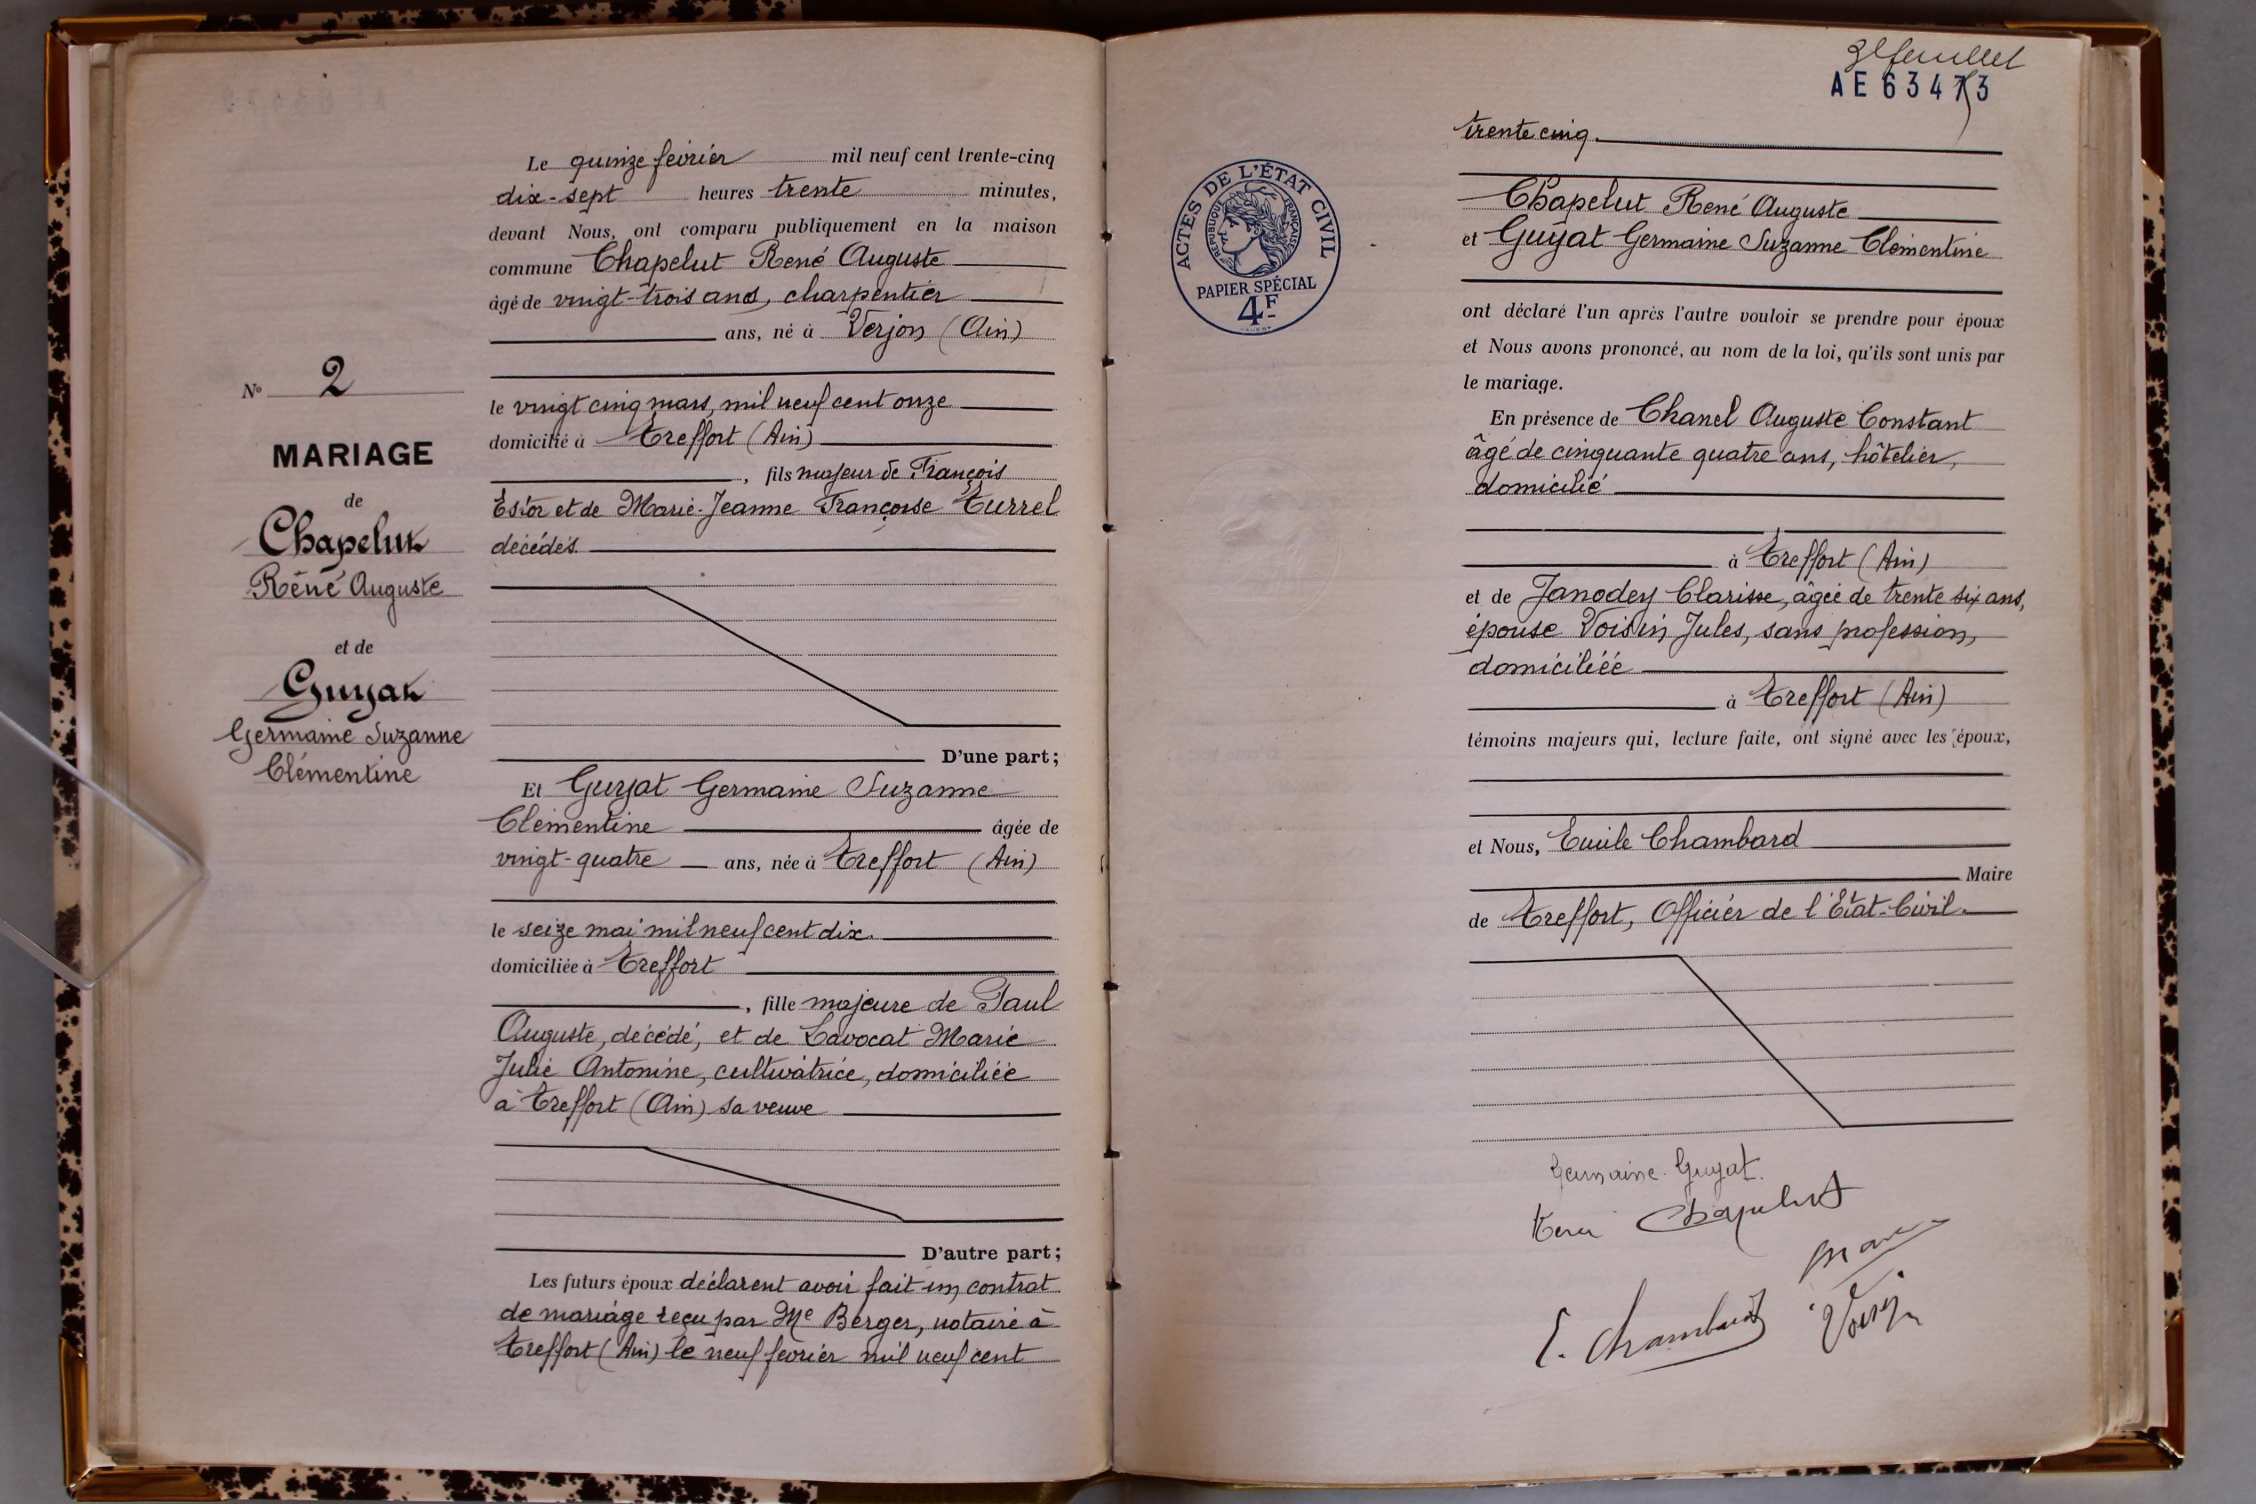 Le quinze février mil neuf cent trente-cinq
dix-sept heures trente minutes,
devant Nous, ont comparu publiquement en la maison
commune Chapelut René Auguste
âgé de vingt-trois ans, charpentier
ans, né à Verjon (Ain)
le vingt cinq mars, mil neuf cent onze
domicilié à Treffort (Ain)
, fils majeur de François
Estor et de Marie-Jeanne Françoise Turrel
décédés.
D'une part;
Et Guyat Germaine Suzanne
Clémentine âgée de
vingt-quatre ans, née à Treffort (Ain)
le seize mai mil neuf cent dix.
domiciliée à Treffort
, fille majeure de Paul
Auguste, décédé, et de Lavocat Marie
Julie Antonine, cultivatrice, domiciliée
à Treffort (Ain) sa veuve
D'autre part;
Les futurs époux déclarent avoir fait un contrat
de mariage reçu par Me Berger, notaire à
Treffort (Ain) le neuf février mil neuf cent
No 2
MARIAGE
de
Chapelut
René Auguste
et de
Guyat
Germaine Suzanne
Clémentine
feuillet
AE63473
trente cinq.
ACTES DE L'ÉTAT CIVIL
RÉPUBLIQUE FRANÇAISE
PAPIER SPÉCIAL
4F
Chapelut René Auguste
et Guyat Germaine Suzanne Clémentine
ont déclaré l'un après l'autre vouloir se prendre pour époux
et Nous avons prononcé, au nom de la loi, qu'ils sont unis par
le mariage.
En présence de Chanel Auguste Constant
âgé de cinquante quatre ans, hôtelier,
domicilié
à Treffort (Ain)
et de Janodey Clarisse, âgée de trente six ans,
épouse Voisin Jules, sans profession,
domiciliée
à Treffort (Ain)
témoins majeurs qui, lecture faite, ont signé avec les époux,
et Nous, Emile Chambard
Maire
de Treffort, Officier de l'Etat-Civil.
Germaine Guyat.
Chapelut
E. Chambard
Voisin